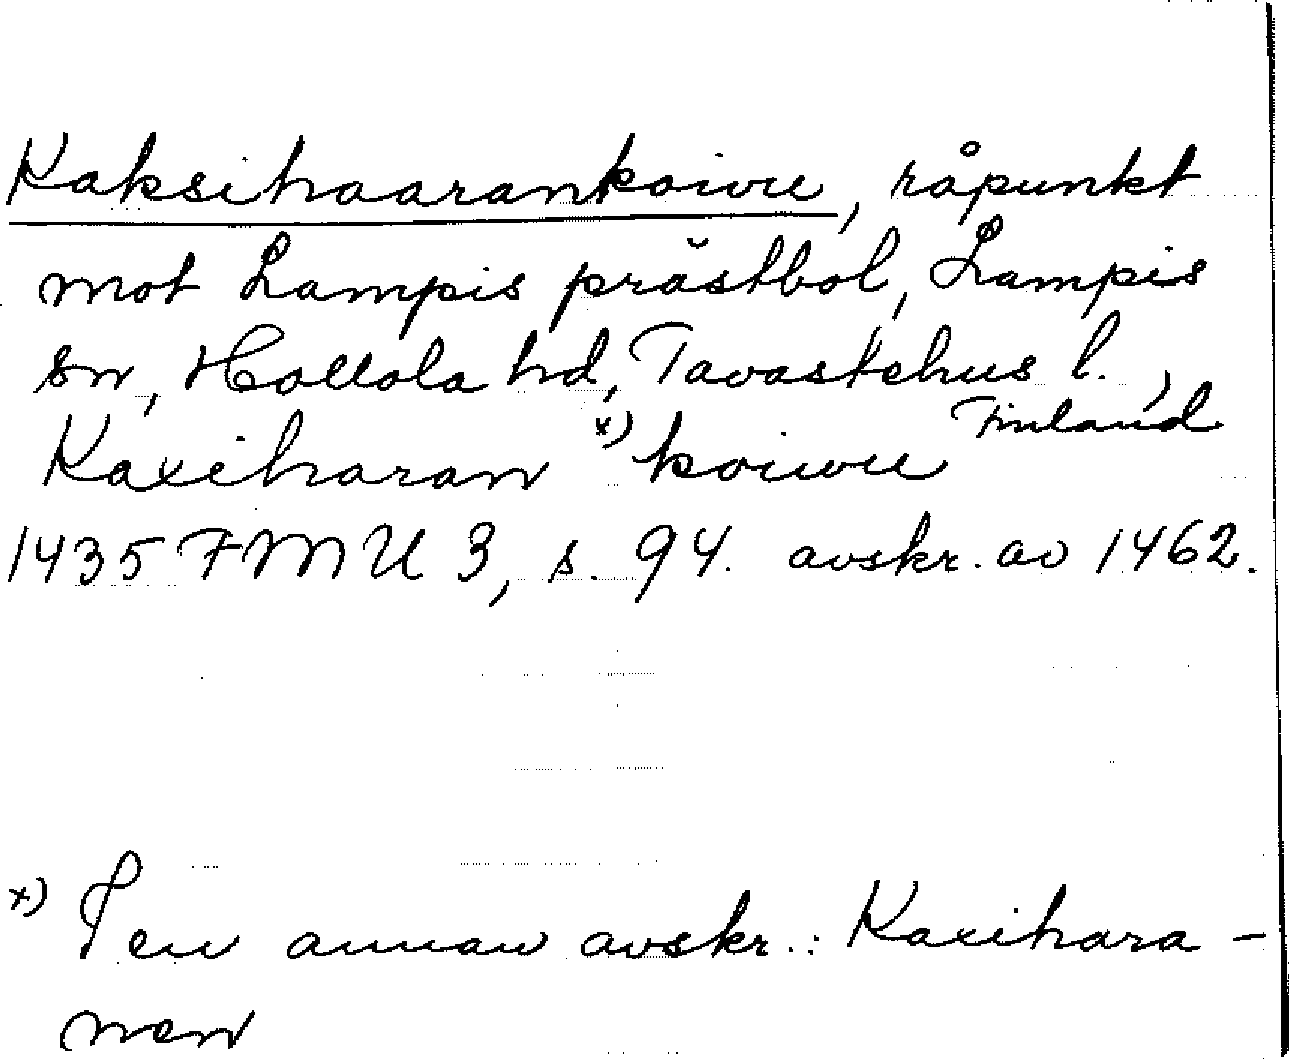 Kaksihaarankoivu, råpunkt
mot Lampis prästbol, Lampis
sn, Hollola hd, Tavastehus l.,
Finland
Kaxiharan x) koiwu
1435 FMU 3, s. 94. avskr. av 1462.
x) I en annan avskr.: Kaxihara-
nen